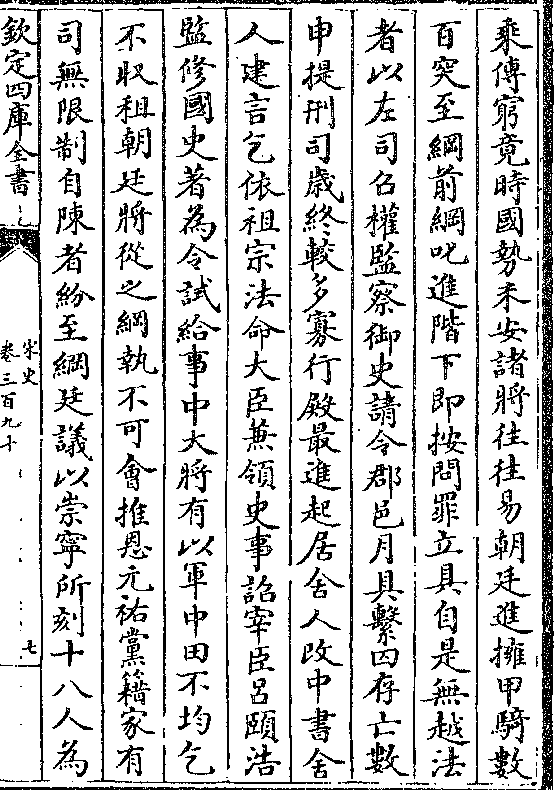 乘傳窮竟時國勢未安諸將往往易朝廷進擁甲騎數
百突至綱前綱叱進階下即按問罪立具自是無越法
者以左司召權監察御史請令郡邑月具繫囚存亡數
申提刑司歳終較多寡行殿最進起居舍人改中書舍
人建言乞依祖宗法命大臣兼領史事詔宰臣吕頤浩
監修國史著為令試給事中大將有以軍中田不均乞
不収租朝廷將從之綱執不可會推恩元祐黨籍家有
司無限制自陳者紛至綱廷議以崇寧所刻十八人為
欽定四庫全書
宋史
卷三百九十
七